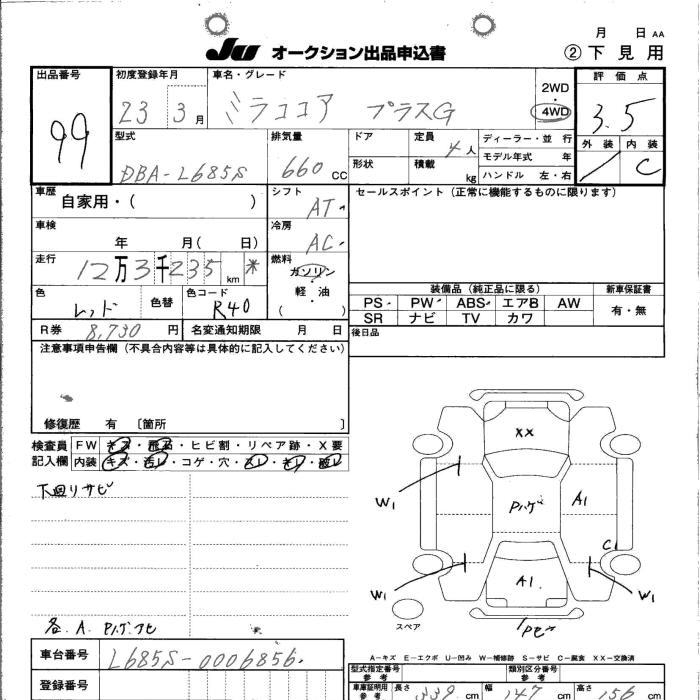 月 日 AA
JU オークション出品申込書 ②下見用
出品番号 初度登録年月 車名・グレード 2WD 評価点
99 23 3月 ミラココア プラスG 4WD 3.5
型式 排気量 ドア 定員 4人 ディーラー・並行 外装 内装
DBA-L685S 660cc 形状 積載 kg モデル年式 年 C
ハンドル 左・右
車歴 自家用・( ) シフト AT セールスポイント(正常に機能するものに限ります)
車検 年 月( 日) 冷房 AC
走行 12万3千235km * 燃料 ガソリン
軽・油
( )
装備品(純正品に限る) 新車保証書
色 レッド 色替 色コード R40 PS PW ABS エアB AW 有・無
SR ナビ TV カワ
R券 8,730円 名変通知期限 月 日 後日品
注意事項申告欄(不具合内容等は具体的に記入してください)
修復歴 有 〔箇所 〕
検査員記入欄 FW キズ・飛石・ヒビ割・リペア跡・X要
内装 キズ・汚レ・コゲ・穴・スレ・キレ・破レ
下回リサビ
XX
W1
Pハゲ
A1
C
W1
A1
W1
スペア
Pサビ
各.A.Pハゲサビ
A-キズ E-エクボ U-凹み W-補修跡 S-サビ C-腐食 XX-交換済
車台番号 L685S-0006856
型式指定番号 参考 類別区分番号 参考
登録番号 車庫証明用参考 長さ 339cm 幅 147cm 高さ 156cm